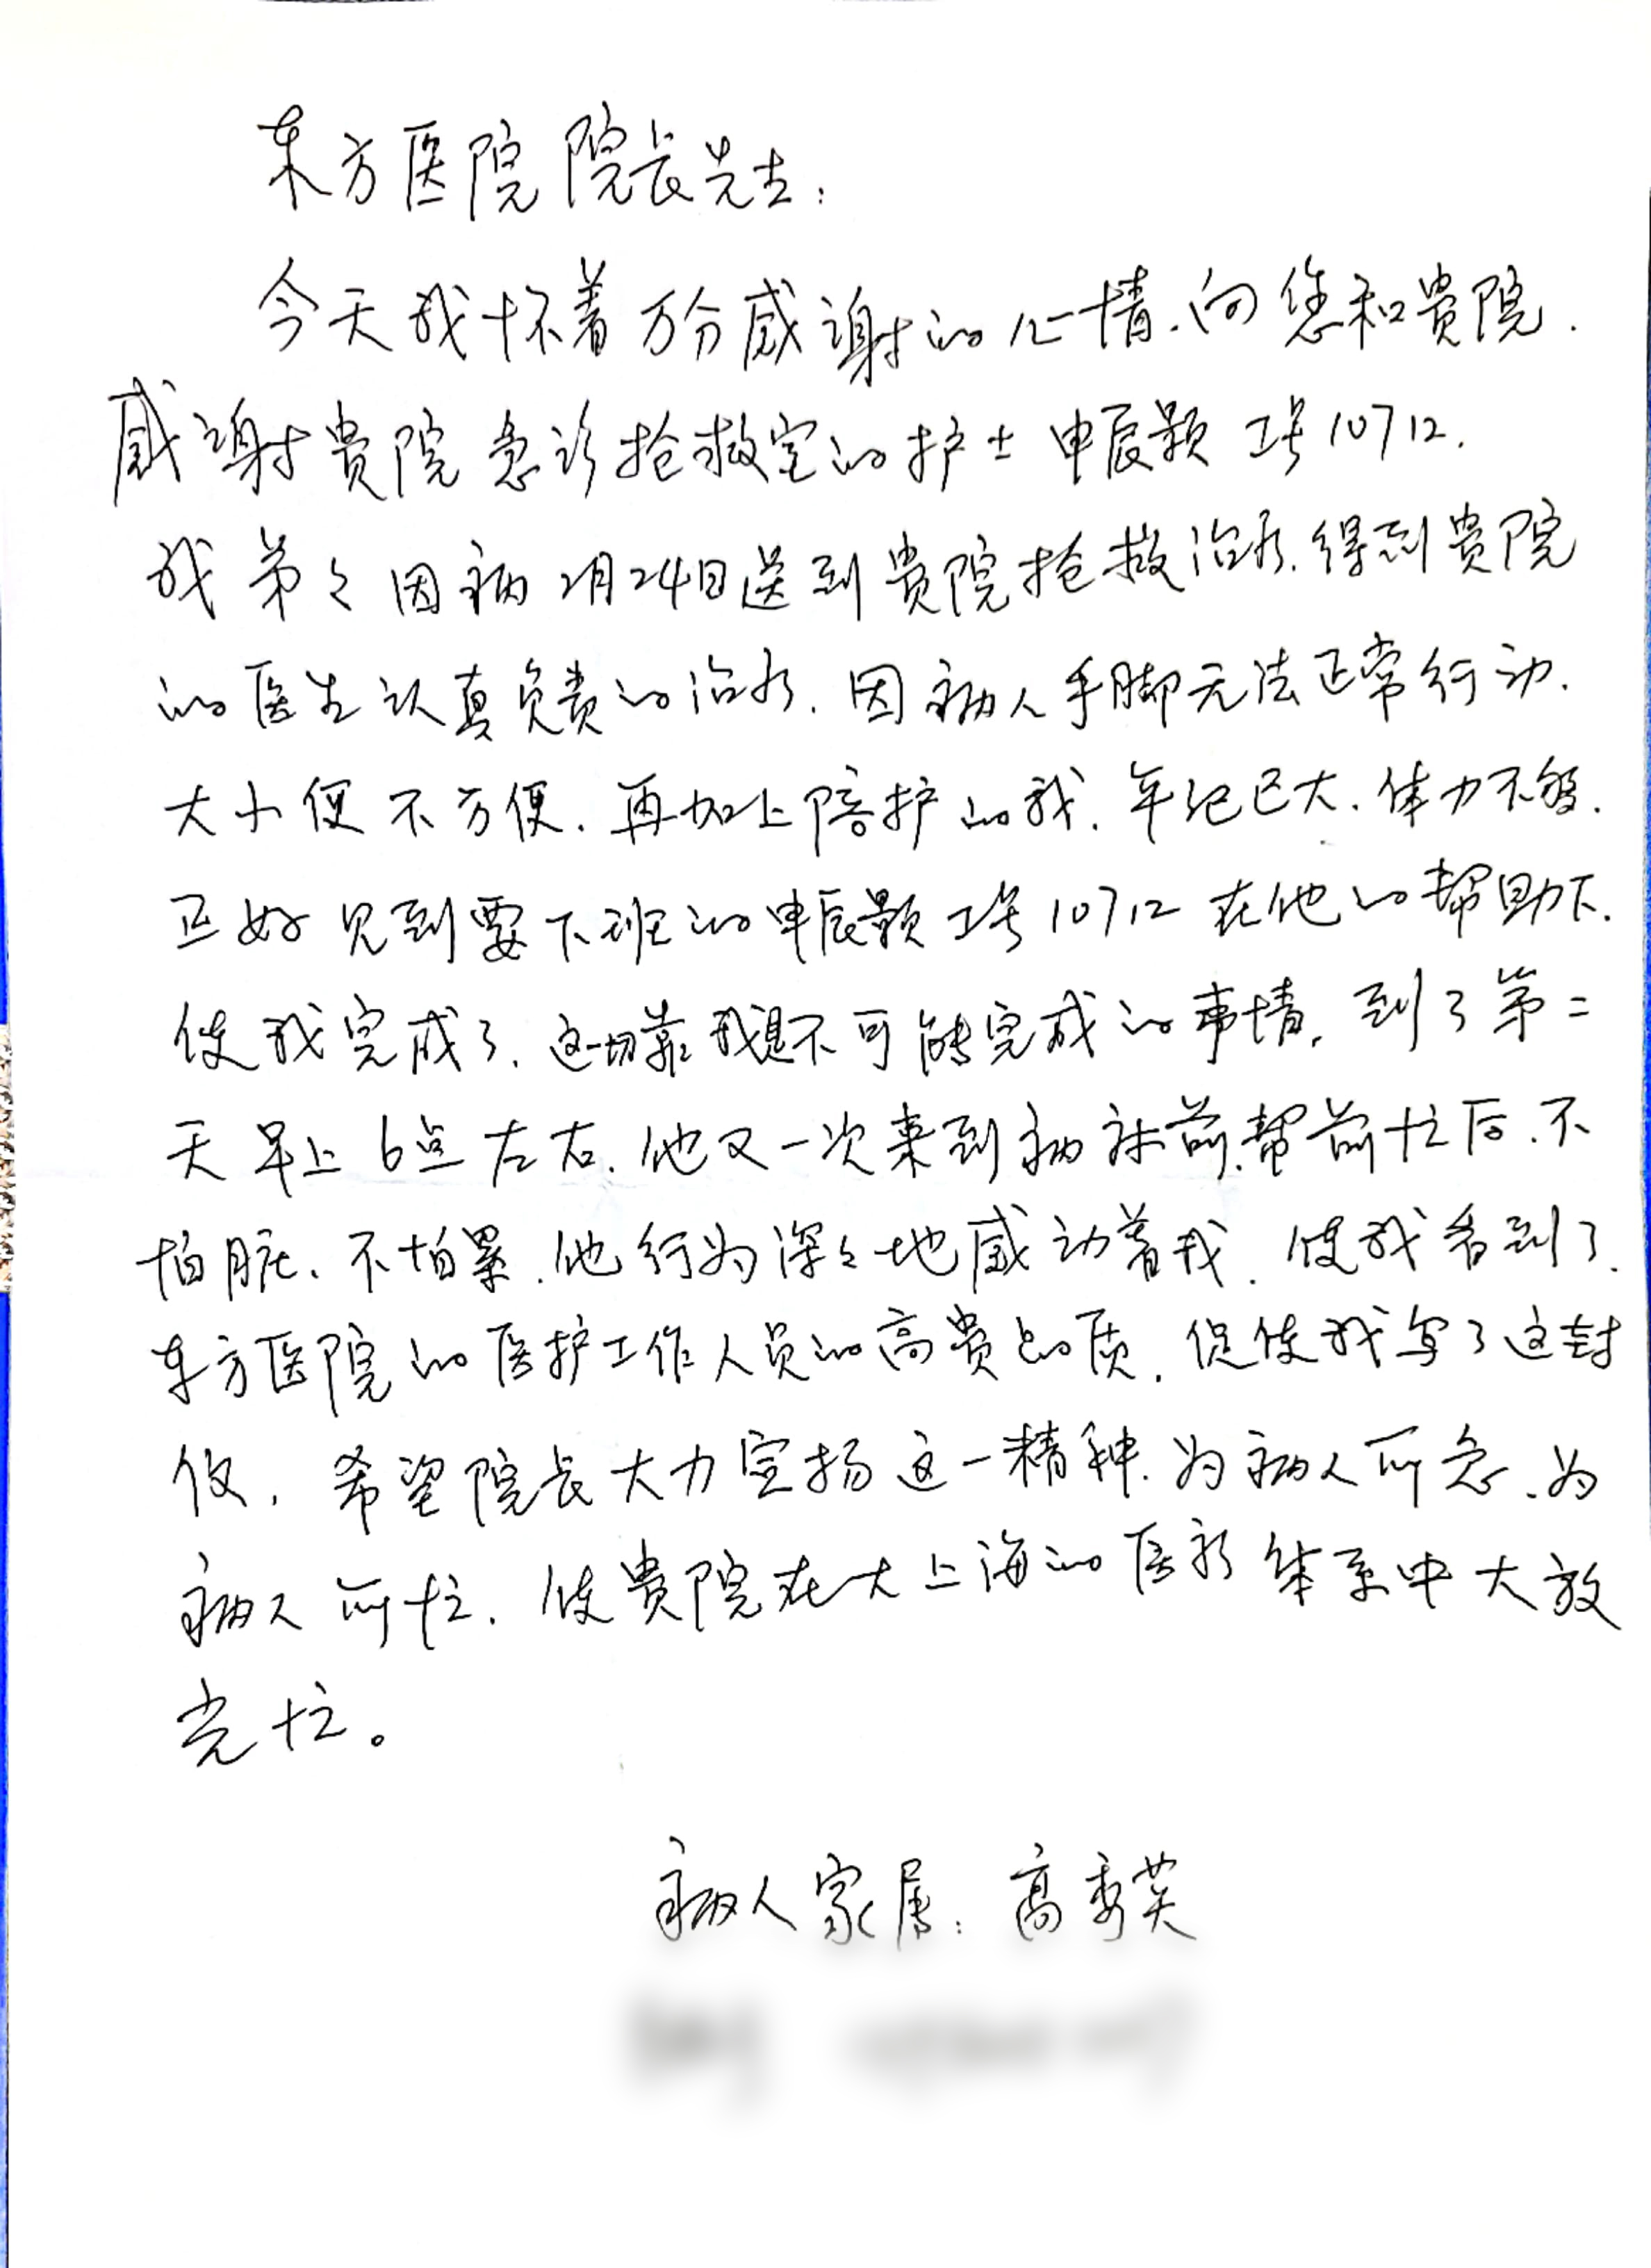 东方医院院长先生:
今天我怀着万分感谢的心情.向您和贵院.
感谢贵院急诊抢救室的护士申辰颢工号10712.
我弟々因病2月24日送到贵院抢救治疗.得到贵院
的医生认真负责的治疗.因病人手脚无法正常行动.
大小便不方便.再加上陪护的我.年纪已大.体力不够.
正好见到要下班的申辰颢工号10712在他的帮助下.
使我完成了.这一切靠我是不可能完成的事情.到了第二
天早上6点左右.他又一次来到病床前.帮前忙后.不
怕脏、不怕累.他行为深々地感动着我.使我看到了.
东方医院的医护工作人员的高贵品质.促使我写了这封
信.希望院长大力宣扬这一精神.为病人所急.为
病人所忙.使贵院在大上海的医疗体系中大放
光忙。
病人家属:高秀英